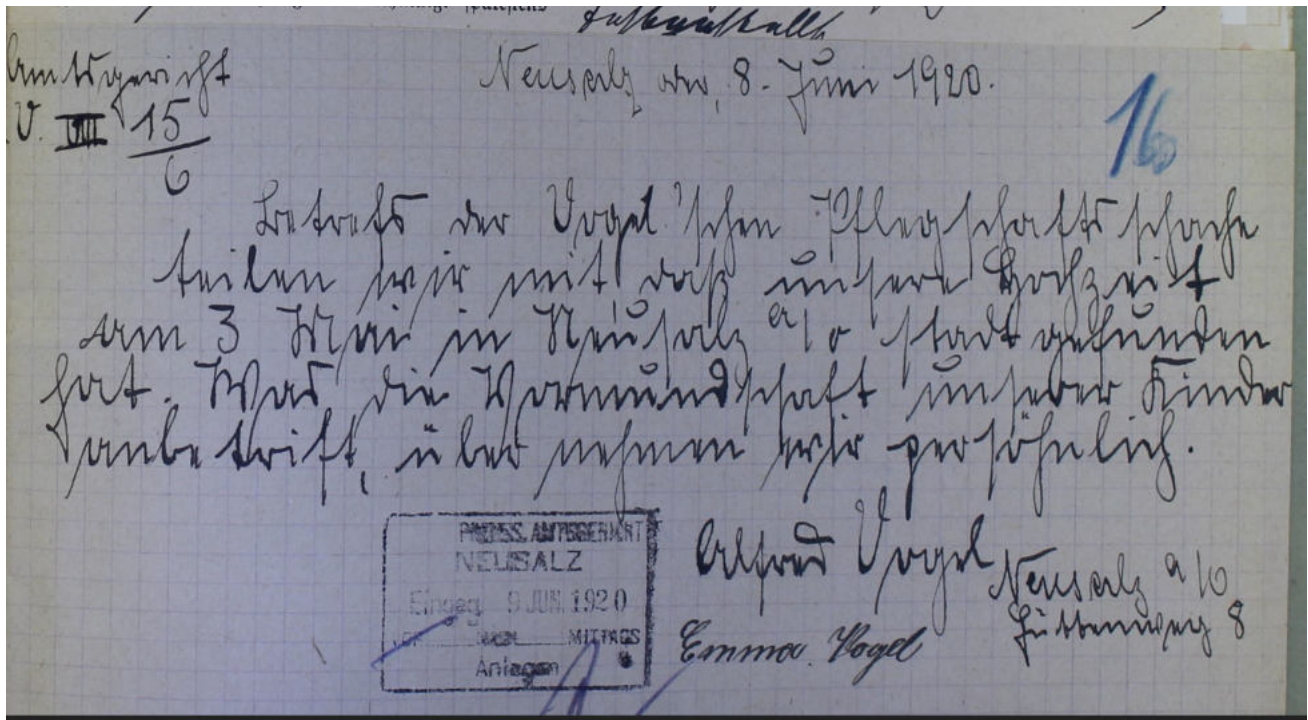 Amtsgericht
Neusalz oder, 8. Juni 1920.
V. VIII 15/6
16
Betrefs der Vogel'schen Pflegschaftsschache
teilen wir mit daß unsere Hochzeit
am 3 Mai in Neusalz a/o stadt gefunden
hat. Was die Vormundschaft unserer Kinder
anbetrift, über nehmen wir persöhnlich.
PREUSS. AMTSGERICHT
NEUSALZ
Eingeg. 9 JUN. 1920
VOR NACH MITTAGS
Anlagen
Alfred Vogel
Neusalz a/O
Hüttenweg 8
Emma Vogel